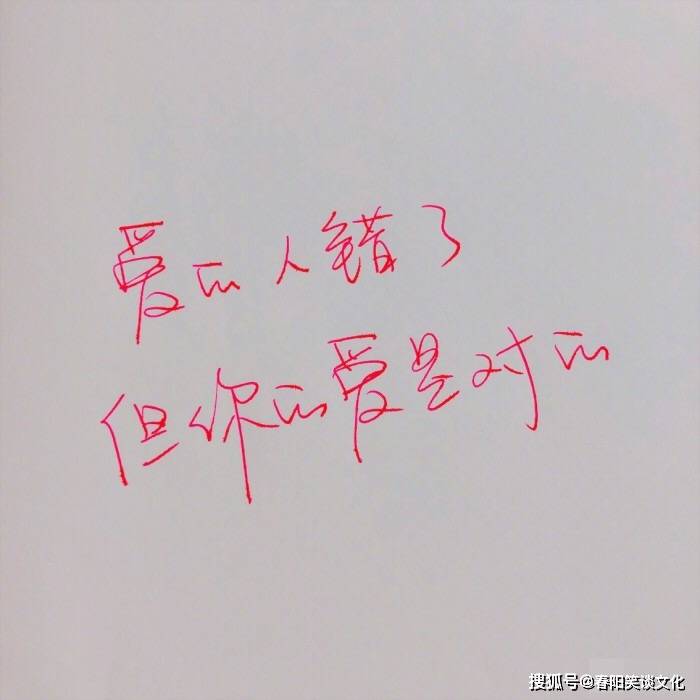 爱的人错了
但你的爱是对的
搜狐号@春阳笑谈文化